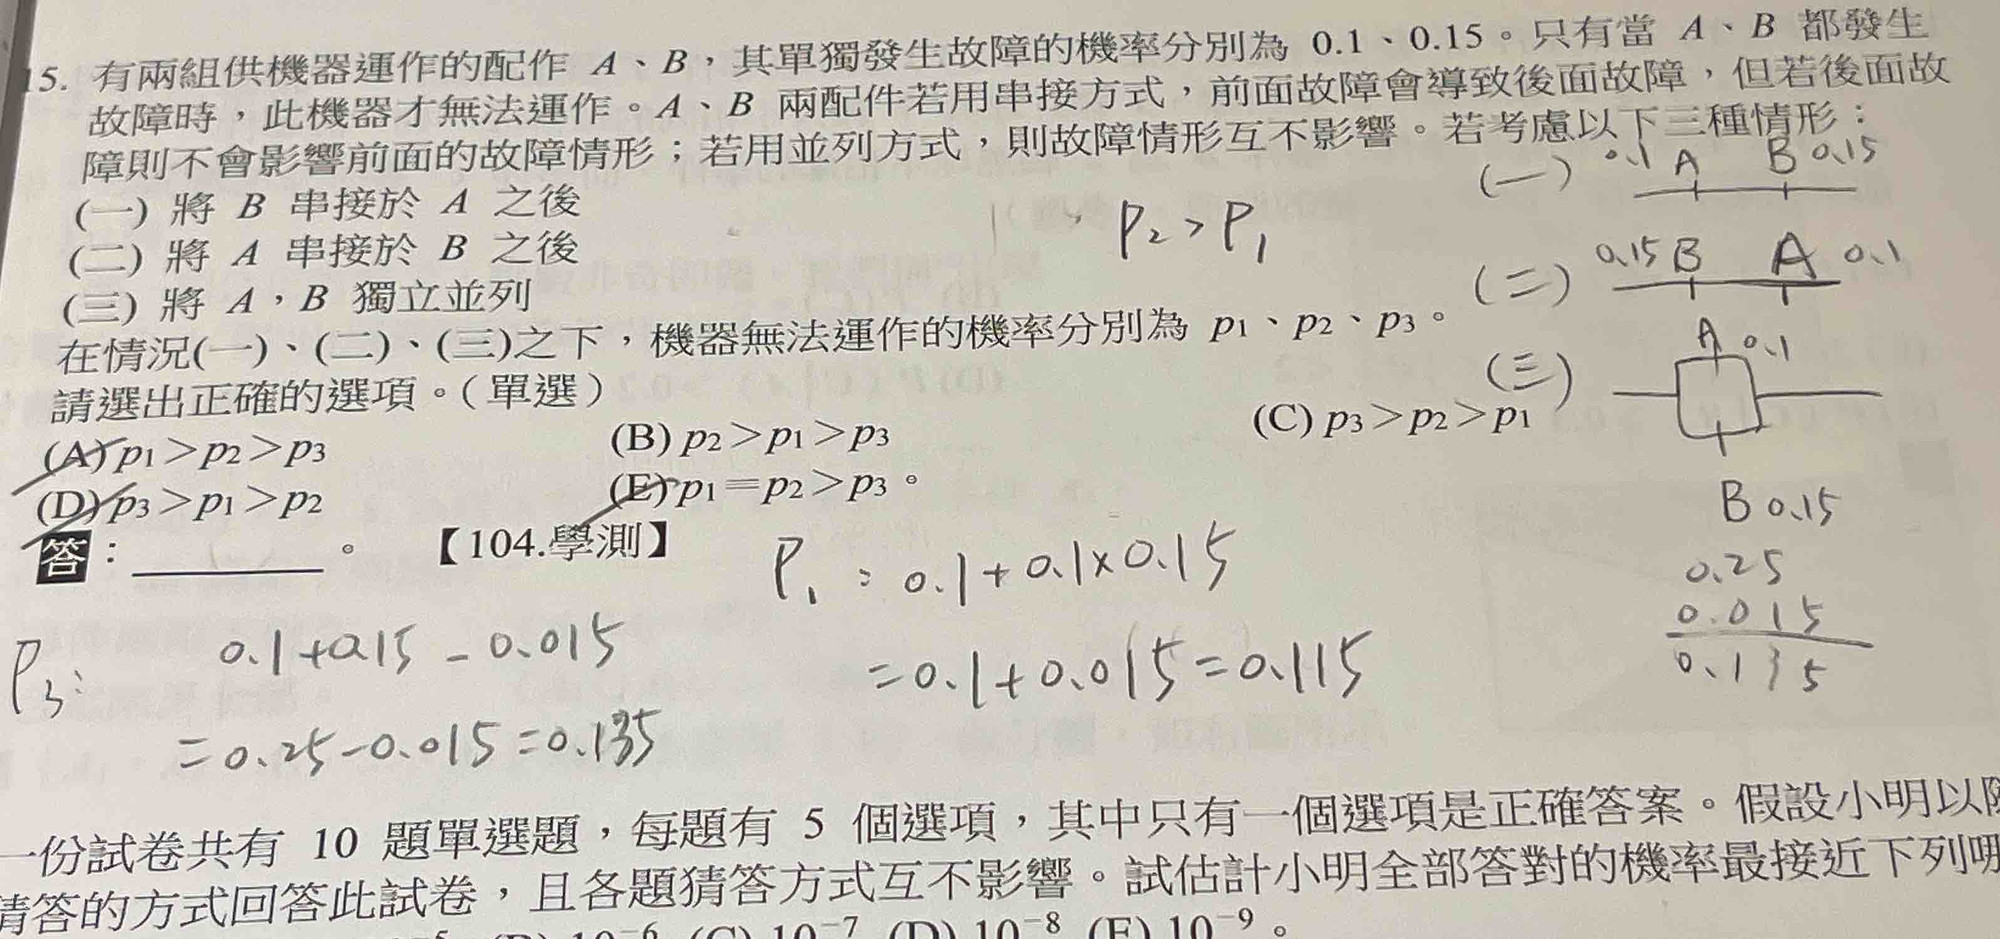 15. 有兩組供機器運作的配作 A、B，其單獨發生故障的機率分別為 0.1、0.15。只有當 A、B 都發生
故障時，此機器才無法運作。A、B 兩配件若用串接方式，前面故障會導致後面故障，但若後面故
障則不會影響前面的故障情形；若用並列方式，則故障情形互不影響。若考慮以下三種情形：
(一) 將 B 串接於 A 之後
(二) 將 A 串接於 B 之後
(三) 將 A，B 獨立並列
在情況(一)、(二)、(三)之下，機器無法運作的機率分別為 p1、p2、p3。
請選出正確的選項。(單選)
(A) p1＞p2＞p3 (B) p2＞p1＞p3 (C) p3＞p2＞p1
(D) p3＞p1＞p2 (E) p1＝p2＞p3。
答：＿＿＿＿。 【104.學測】
(一) 0.1 A B 0.15
P2 > P1
(二) 0.15 B A 0.1
(三) A 0.1
B 0.15
0.25
0.015
0.135
P1 : 0.1+0.1×0.15
=0.1+0.015=0.115
P3: 0.1+0.15-0.015
=0.25-0.015=0.135
一份試卷共有 10 題單選題，每題有 5 個選項，其中只有一個選項是正確答案。假設小明以隨
猜答的方式回答此試卷，且各題猜答方式互不影響。試估計小明全部答對的機率最接近下列哪
(C) 10⁻⁷ (D) 10⁻⁸ (E) 10⁻⁹。